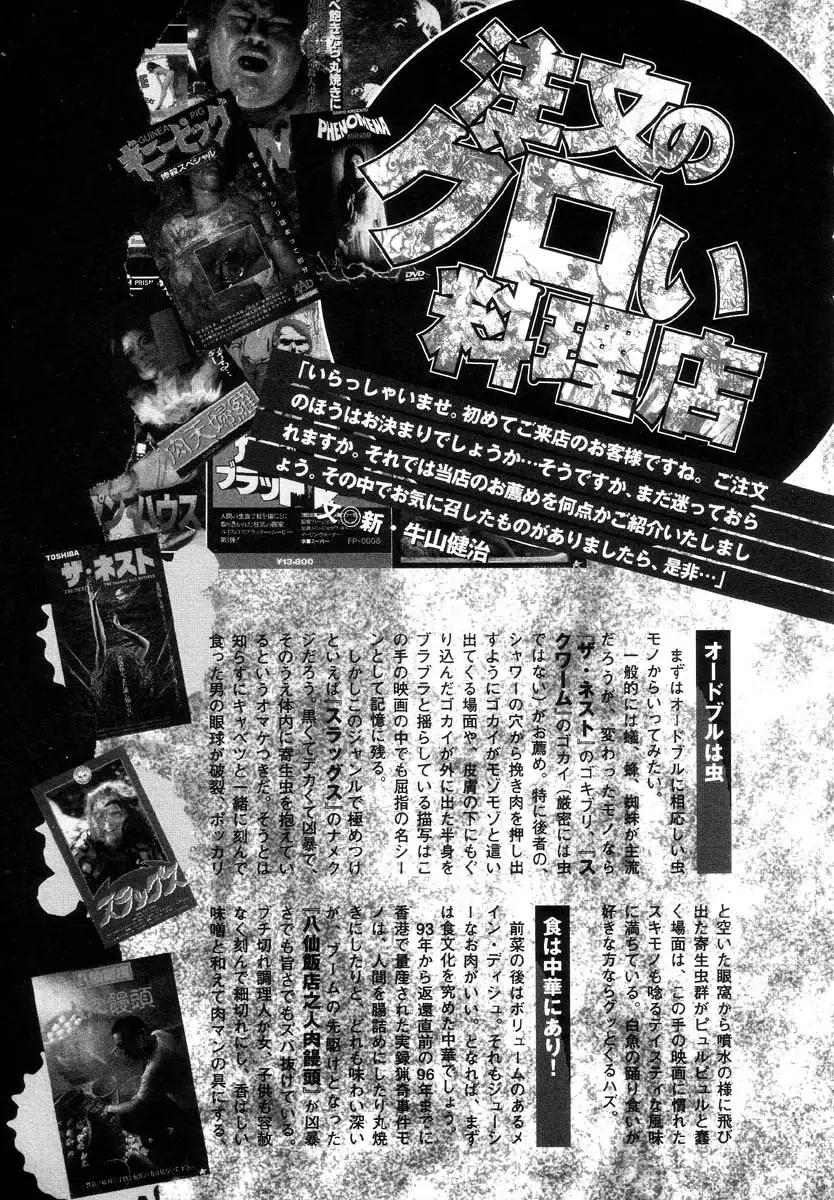 注文の
グロい
料理店
「いらっしゃいませ。初めてご来店のお客様ですね。ご注文
のほうはお決まりでしょうか…そうですか、まだ迷っておら
れますか。それでは当店のお薦めを何点かご紹介いたしまし
ょう。その中でお気に召したものがありましたら、是非…」
文◎新・牛山健治
オードブルは虫
まずはオードブルに相応しい虫
モノからいってみたい。
一般的には蟻、蜂、蜘蛛が主流
だろうが、変わったモノなら
『ザ・ネスト』のゴキブリ、『ス
クワーム』のゴカイ(厳密には虫
ではない)がお薦め。特に後者の、
シャワーの穴から挽き肉を押し出
すようにゴカイがモゾモゾと這い
出てくる場面や、皮膚の下にもぐ
り込んだゴカイが外に出た半身を
ブラブラと揺らしている描写はこ
の手の映画の中でも屈指の名シー
ンとして記憶に残る。
しかしこのジャンルで極めつけ
といえば『スラッグス』のナメク
ジだろう。黒くてデカくて凶暴で、
そのうえ体内に寄生虫を抱えてい
るというオマケつきだ。そうとは
知らずにキャベツと一緒に刻んで
食った男の眼球が破裂、ポッカリ
と空いた眼窩から噴水の様に飛び
出た寄生虫群がピュルピュルと蠢
く場面は、この手の映画に慣れた
スキモノも唸るテイスティな風味
に満ちている。白魚の踊り食いが
好きな方ならグッとくるハズ。
食は中華にあり!
前菜の後はボリュームのあるメ
イン・ディシュ。それもジューシ
ーなお肉がいい。となれば、まず
は食文化を究めた中華でしょう。
93年から返還直前の96年までに
香港で量産された実録猟奇事件モ
ノは、人間を腸詰めにしたり丸焼
きにしたりと、どれも味わい深い
が、ブームの先駆けとなった
『八仙飯店之人肉饅頭』が凶暴
さでも旨さでもズバ抜けている。
ブチ切れ調理人が女、子供も容赦
なく刻んで細切れにし、香ばしい
味噌と和えて肉マンの具にする
GUINEA PIG
ギニーピッグ
惨殺スペシャル
MAD
PHENOMENA
DVD
べ飽きたから、丸焼きに
PRISM
肉天婦羅
ハウス
ブラッド
¥13,800
FP-0008
TOSHIBA
ザ・ネスト
スラッグス
饅頭